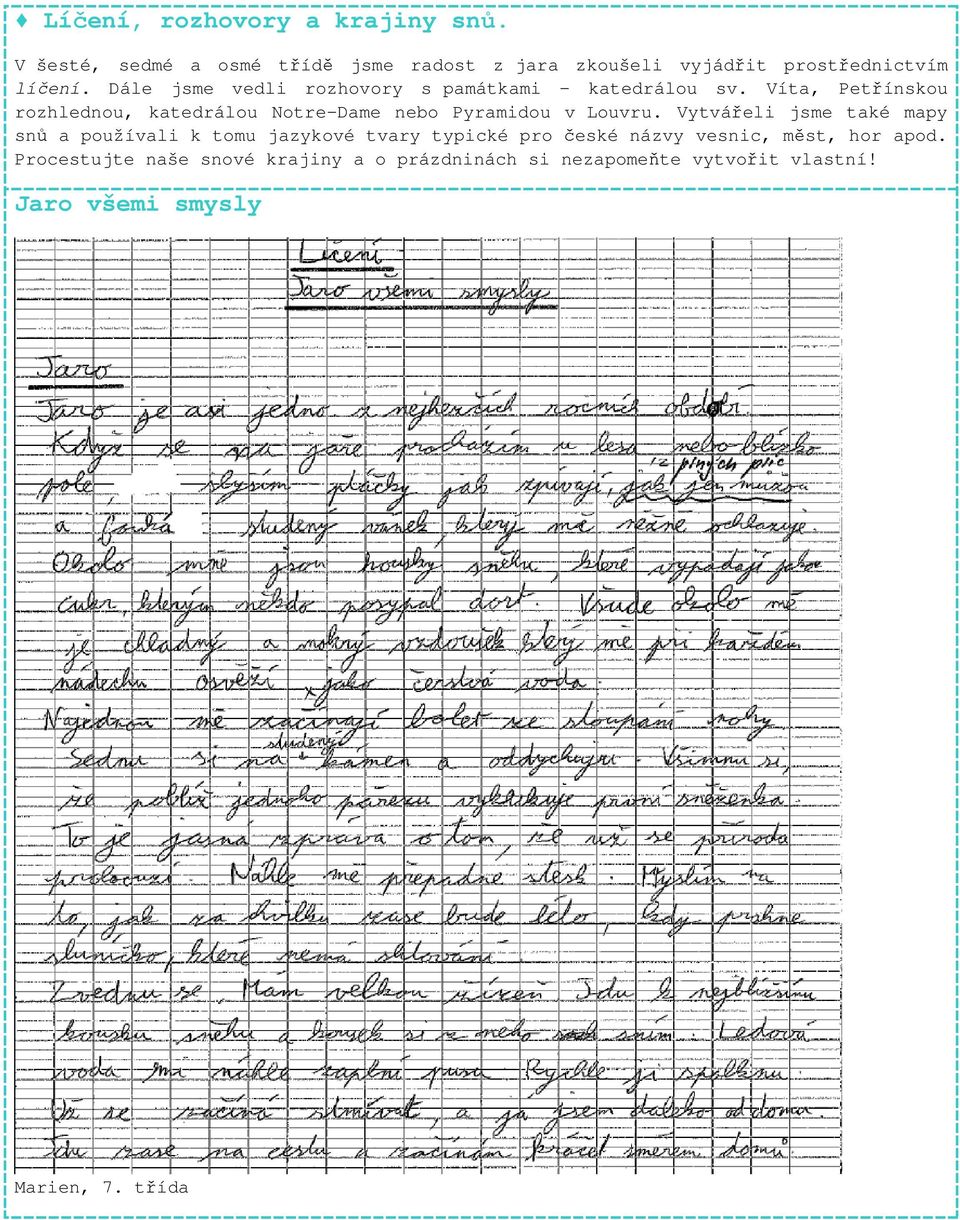 ♦ Líčení, rozhovory a krajiny snů.
V šesté, sedmé a osmé třídě jsme radost z jara zkoušeli vyjádřit prostřednictvím
líčení. Dále jsme vedli rozhovory s památkami – katedrálou sv. Víta, Petřínskou
rozhlednou, katedrálou Notre-Dame nebo Pyramidou v Louvru. Vytvářeli jsme také mapy
snů a používali k tomu jazykové tvary typické pro české názvy vesnic, měst, hor apod.
Procestujte naše snové krajiny a o prázdninách si nezapomeňte vytvořit vlastní!
Jaro všemi smysly
Líčení
Jaro všemi smysly
Jaro
Jaro je asi jedno z nejhezčích ročních období.
Když se na jaře procházím u lesa nebo blízko
iz plných plic
pole, slyším ptáčky jak zpívají, jak jen můžou
a fouká studený vánek, který mě něžně ochlazuje.
Okolo mně jsou housky sněhu, které vypadají jako
cukr, kterým někdo posypal dort. Všude okolo mě
je chladný a mokrý vzdoušek který mě při každém
nádechu osvěží jako čerstvá voda.
Najednou mě začínají bolet ze stoupání nohy.
studený
Sednu si na kámen a oddychuju. Všimnu si,
že poblíž jednoho pařezu vykukuje první sněženka.
To je jasná zpráva o tom, že už se příroda
probouzí. Náhle mě přepadne stesk. Myslím na
to, jak za chvilku zase bude léto, kdy prahne
sluníčko, které nemá slitování.
Zvednu se. Mám velkou žízeň. Jdu k nejbližšímu
kousku sněhu a kousek si z něho sním. Ledová
voda mi náhle zaplní pusu. Rychle ji spolknu.
Už se začíná stmívat, a já jsem daleko od domu.
Jdu zase na cestu a začínám kráčet směrem domů.
Marien, 7. třída